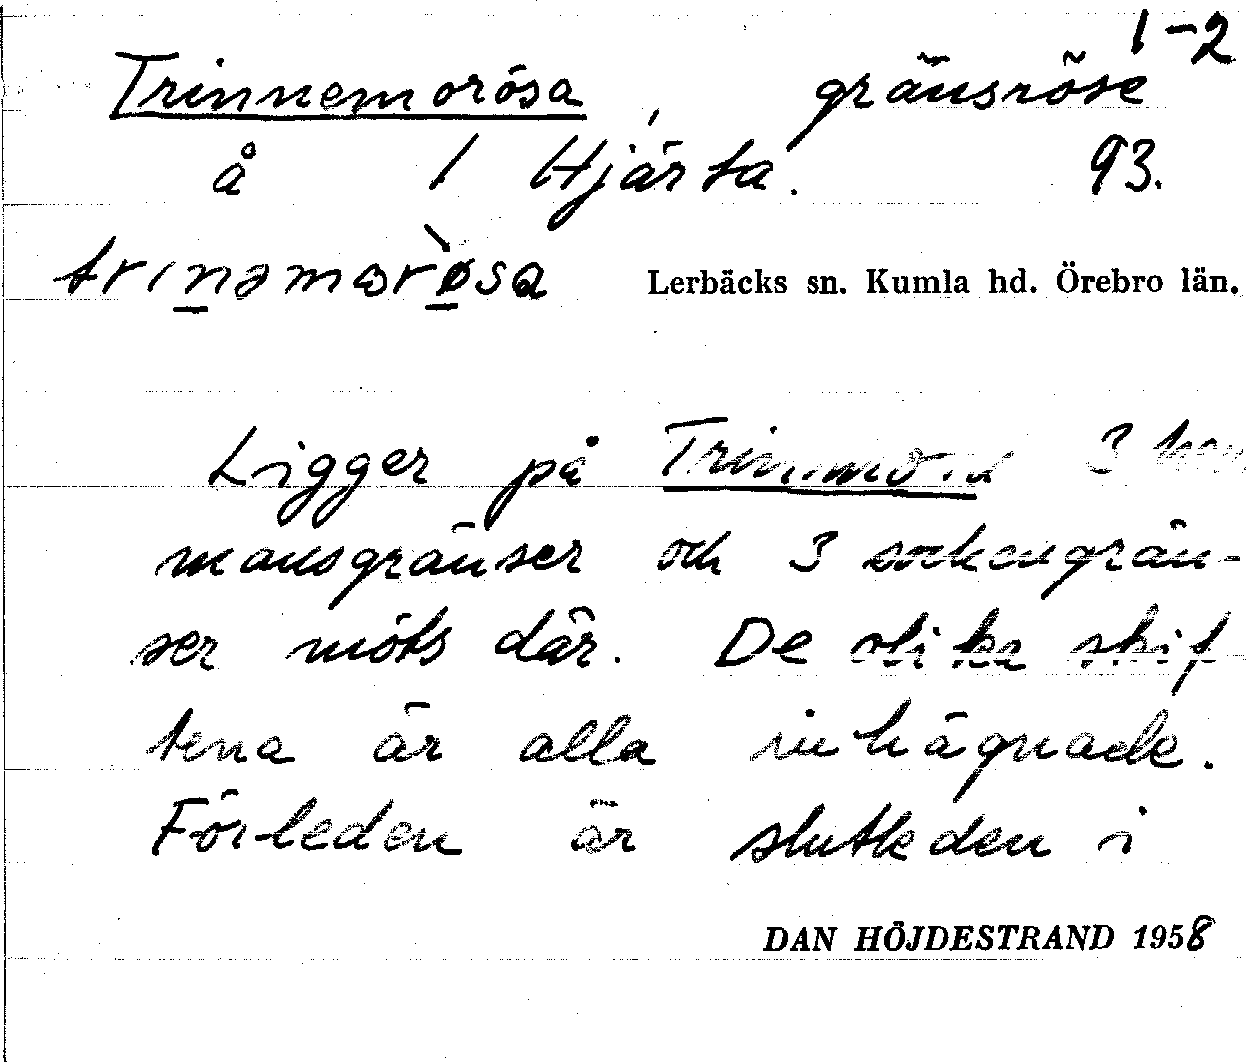 1-2
Trinnemorösa, gränsröse
å 1 Hjärta. 93.
trinəmorø̀sa Lerbäcks sn. Kumla hd. Örebro län.
Ligger på 3 hem
mansgränser och 3 sockengrän-
ser möts där. De olika skif
tena är alla inhägnade.
Förleden är slutleden i
DAN HÖJDESTRAND 1958